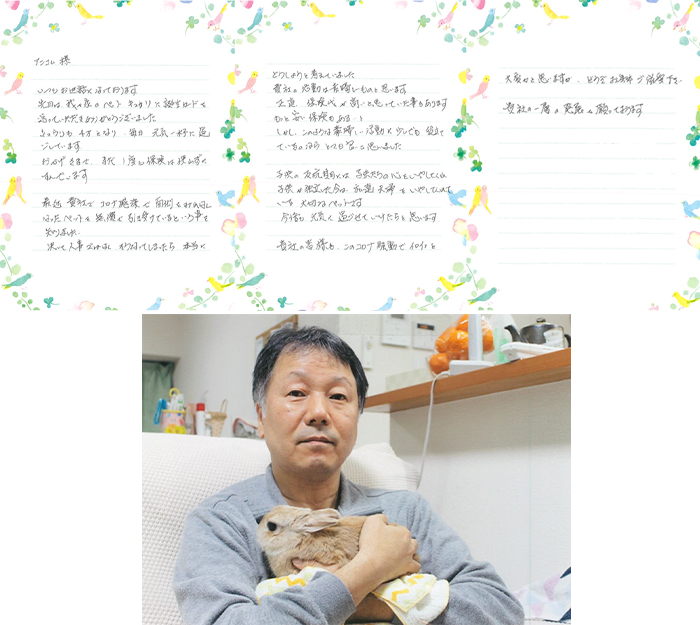 アニコム 様
いつもお世話になっております
先日は、我が家のペット キュウリに誕生日カードを
送っていただきありがとうございました
きゅうりも 4才となり 毎日 元気一杯に過
ごしています
おかげさまで、まだ1度も保険は使わずに
すんでいます
最近 貴社で コロナ感染で 面倒をみれなく
なったペットを 無償で引き受けているという事を
知りました
決して人事ではなく、かかってしまったら 本当に
どうしようと考えていました
貴社の活動は素晴しいものと思います
正直、保険代が高いと思っていた事もあります
もっと安い保険もあると
しかし、このような素晴しい活動に少しでも役立て
ているのなら とても安いと思いました
子供の反抗期には 子供たちの心をいやしてくれ
子供が独立した今は、私達夫婦をいやしてくれて
いる 大切なペットです
今後も 元気に過ごしていけたらと思います
貴社の皆様も、このコロナ騒動で イロイロと
大変かと思いますが、どうぞお身体ご自愛下さい
貴社の一層の発展を願っております